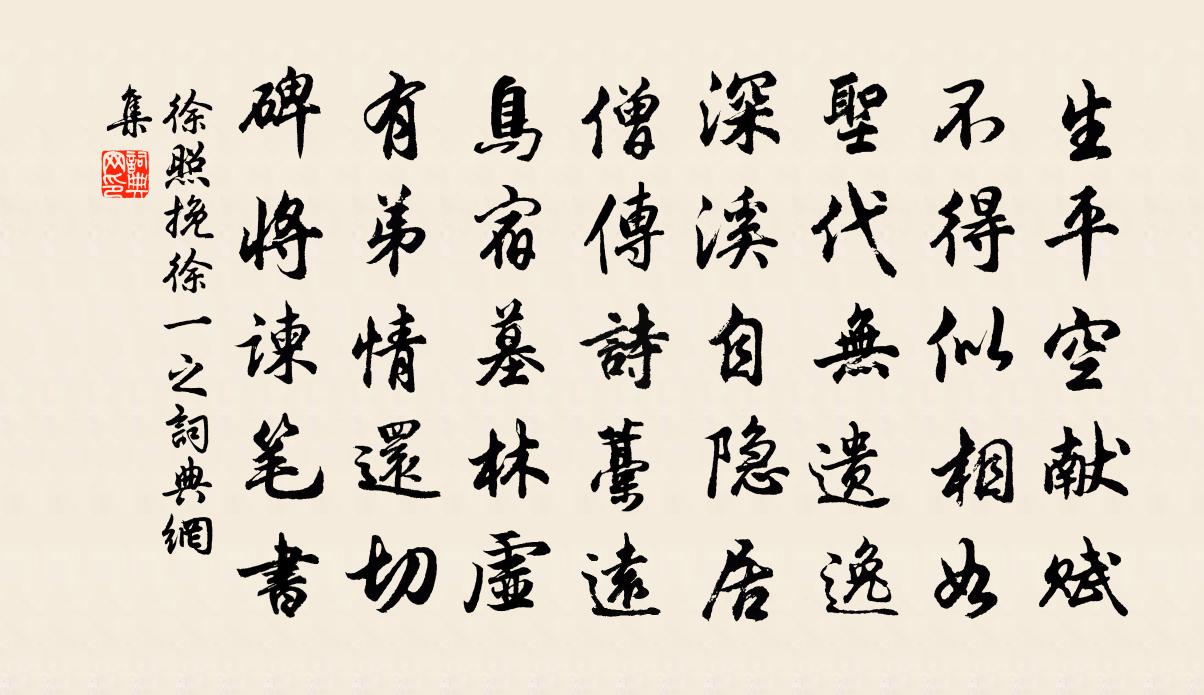 生平空献赋
不得似相如
聖代無遗逸
深溪自隐居
僧傳詩藁遠
鳥宿墓林虛
有弟情還切
碑將谏笔書
徐照挽徐一之詞典網
集
詞典
网印